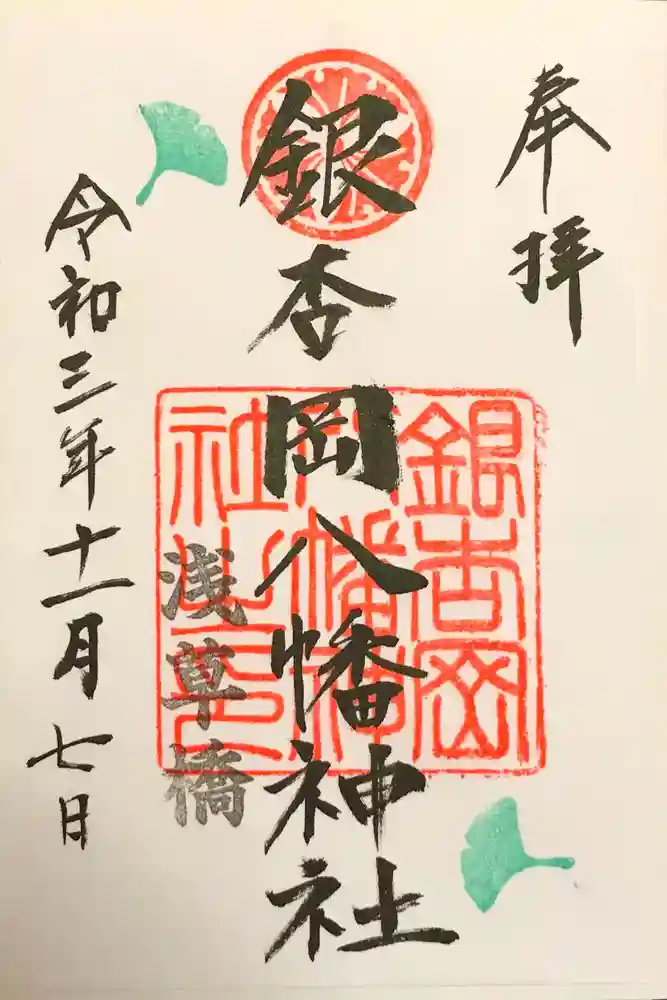 奉拝
銀杏岡八幡神社
銀杏岡
八幡神
社之印
浅草橋
令和三年十一月七日